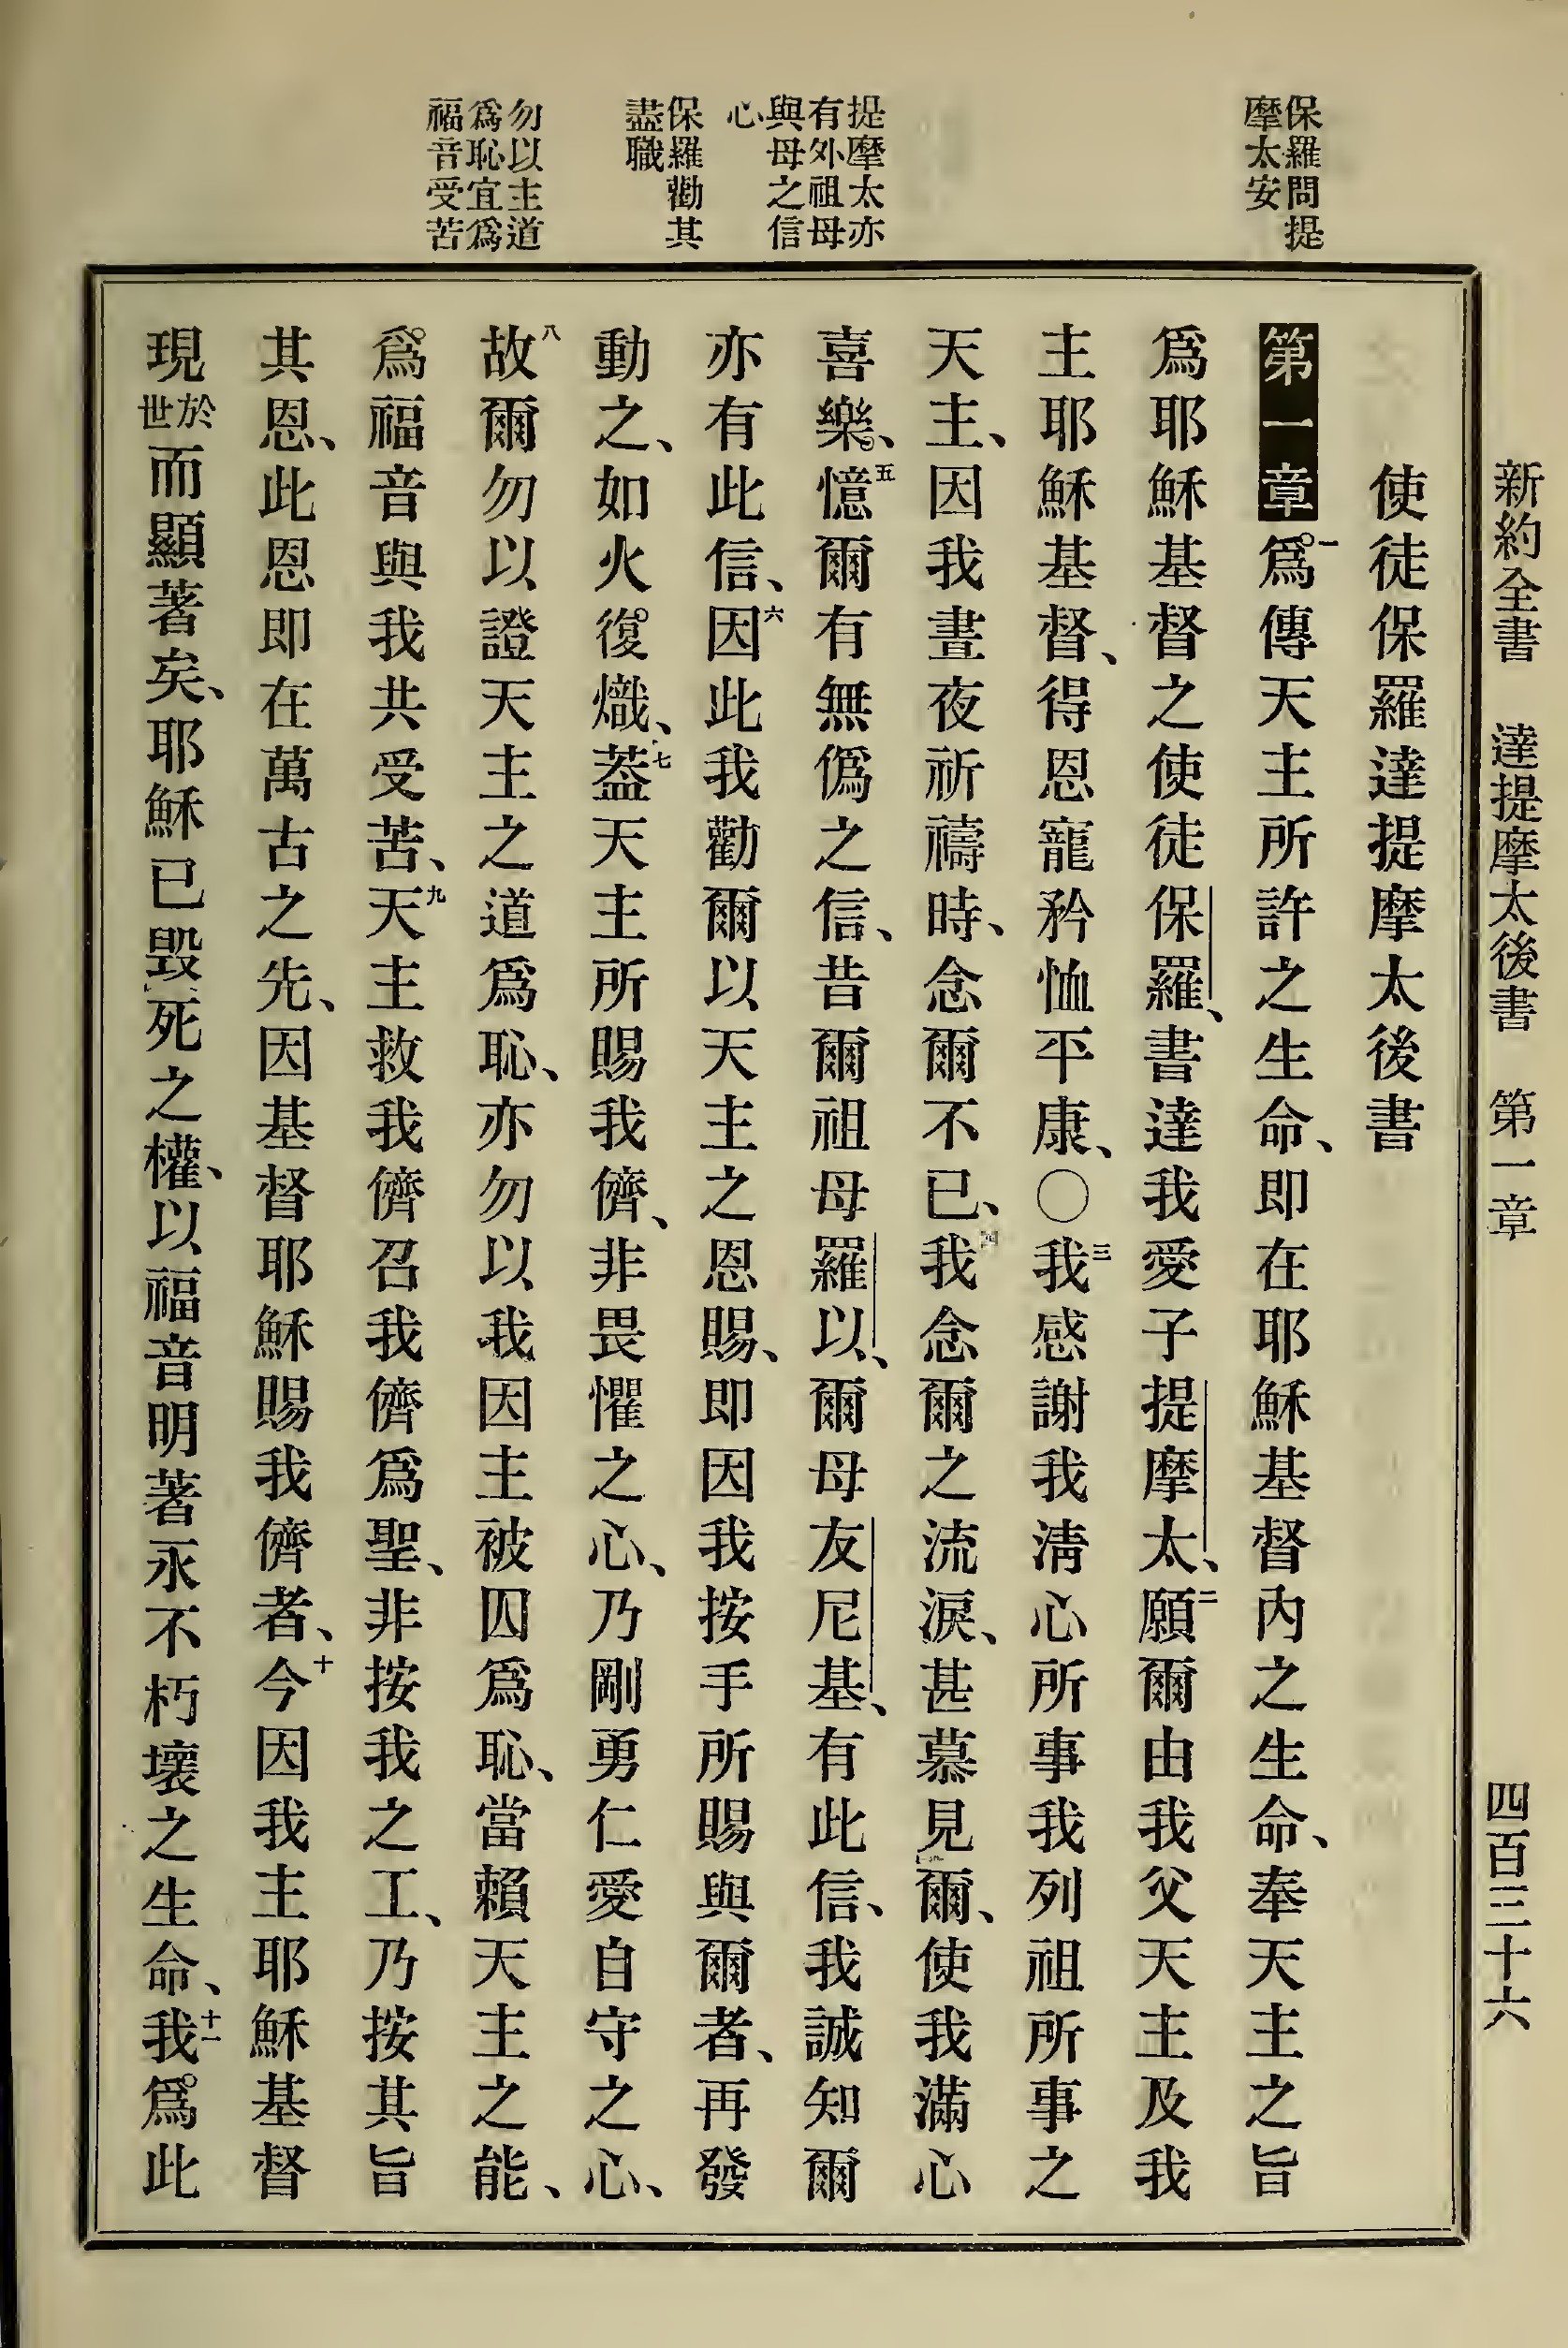 新約全書 達提摩太後書 第一章 四百三十六
保羅問提
摩太安
提摩太亦
有外祖母
與母之信
心
保羅勸其
盡職
勿以主道
爲恥宜爲
福音受苦
使徒保羅達提摩太後書
第一章 一爲傳天主所許之生命、即在耶穌基督內之生命、奉天主之旨
爲耶穌基督之使徒保羅、書達我愛子提摩太、二願爾由我父天主及我
主耶穌基督、得恩寵矜恤平康、〇三我感謝我淸心所事我列祖所事之
天主、因我晝夜祈禱時、念爾不已、四我念爾之流淚、甚慕見爾、使我滿心
喜樂、五憶爾有無僞之信、昔爾祖母羅以、爾母友尼基、有此信、我誠知爾
亦有此信、六因此我勸爾以天主之恩賜、即因我按手所賜與爾者、再發
動之、如火復熾、七蓋天主所賜我儕、非畏懼之心、乃剛勇仁愛自守之心、
八故爾勿以證天主之道爲恥、亦勿以我因主被囚爲恥、當賴天主之能、
爲福音與我共受苦、九天主救我儕召我儕爲聖、非按我之工、乃按其旨
其恩、此恩即在萬古之先、因基督耶穌賜我儕者、十今因我主耶穌基督
現於世而顯著矣、耶穌已毀死之權、以福音明著永不朽壞之生命、十一我爲此